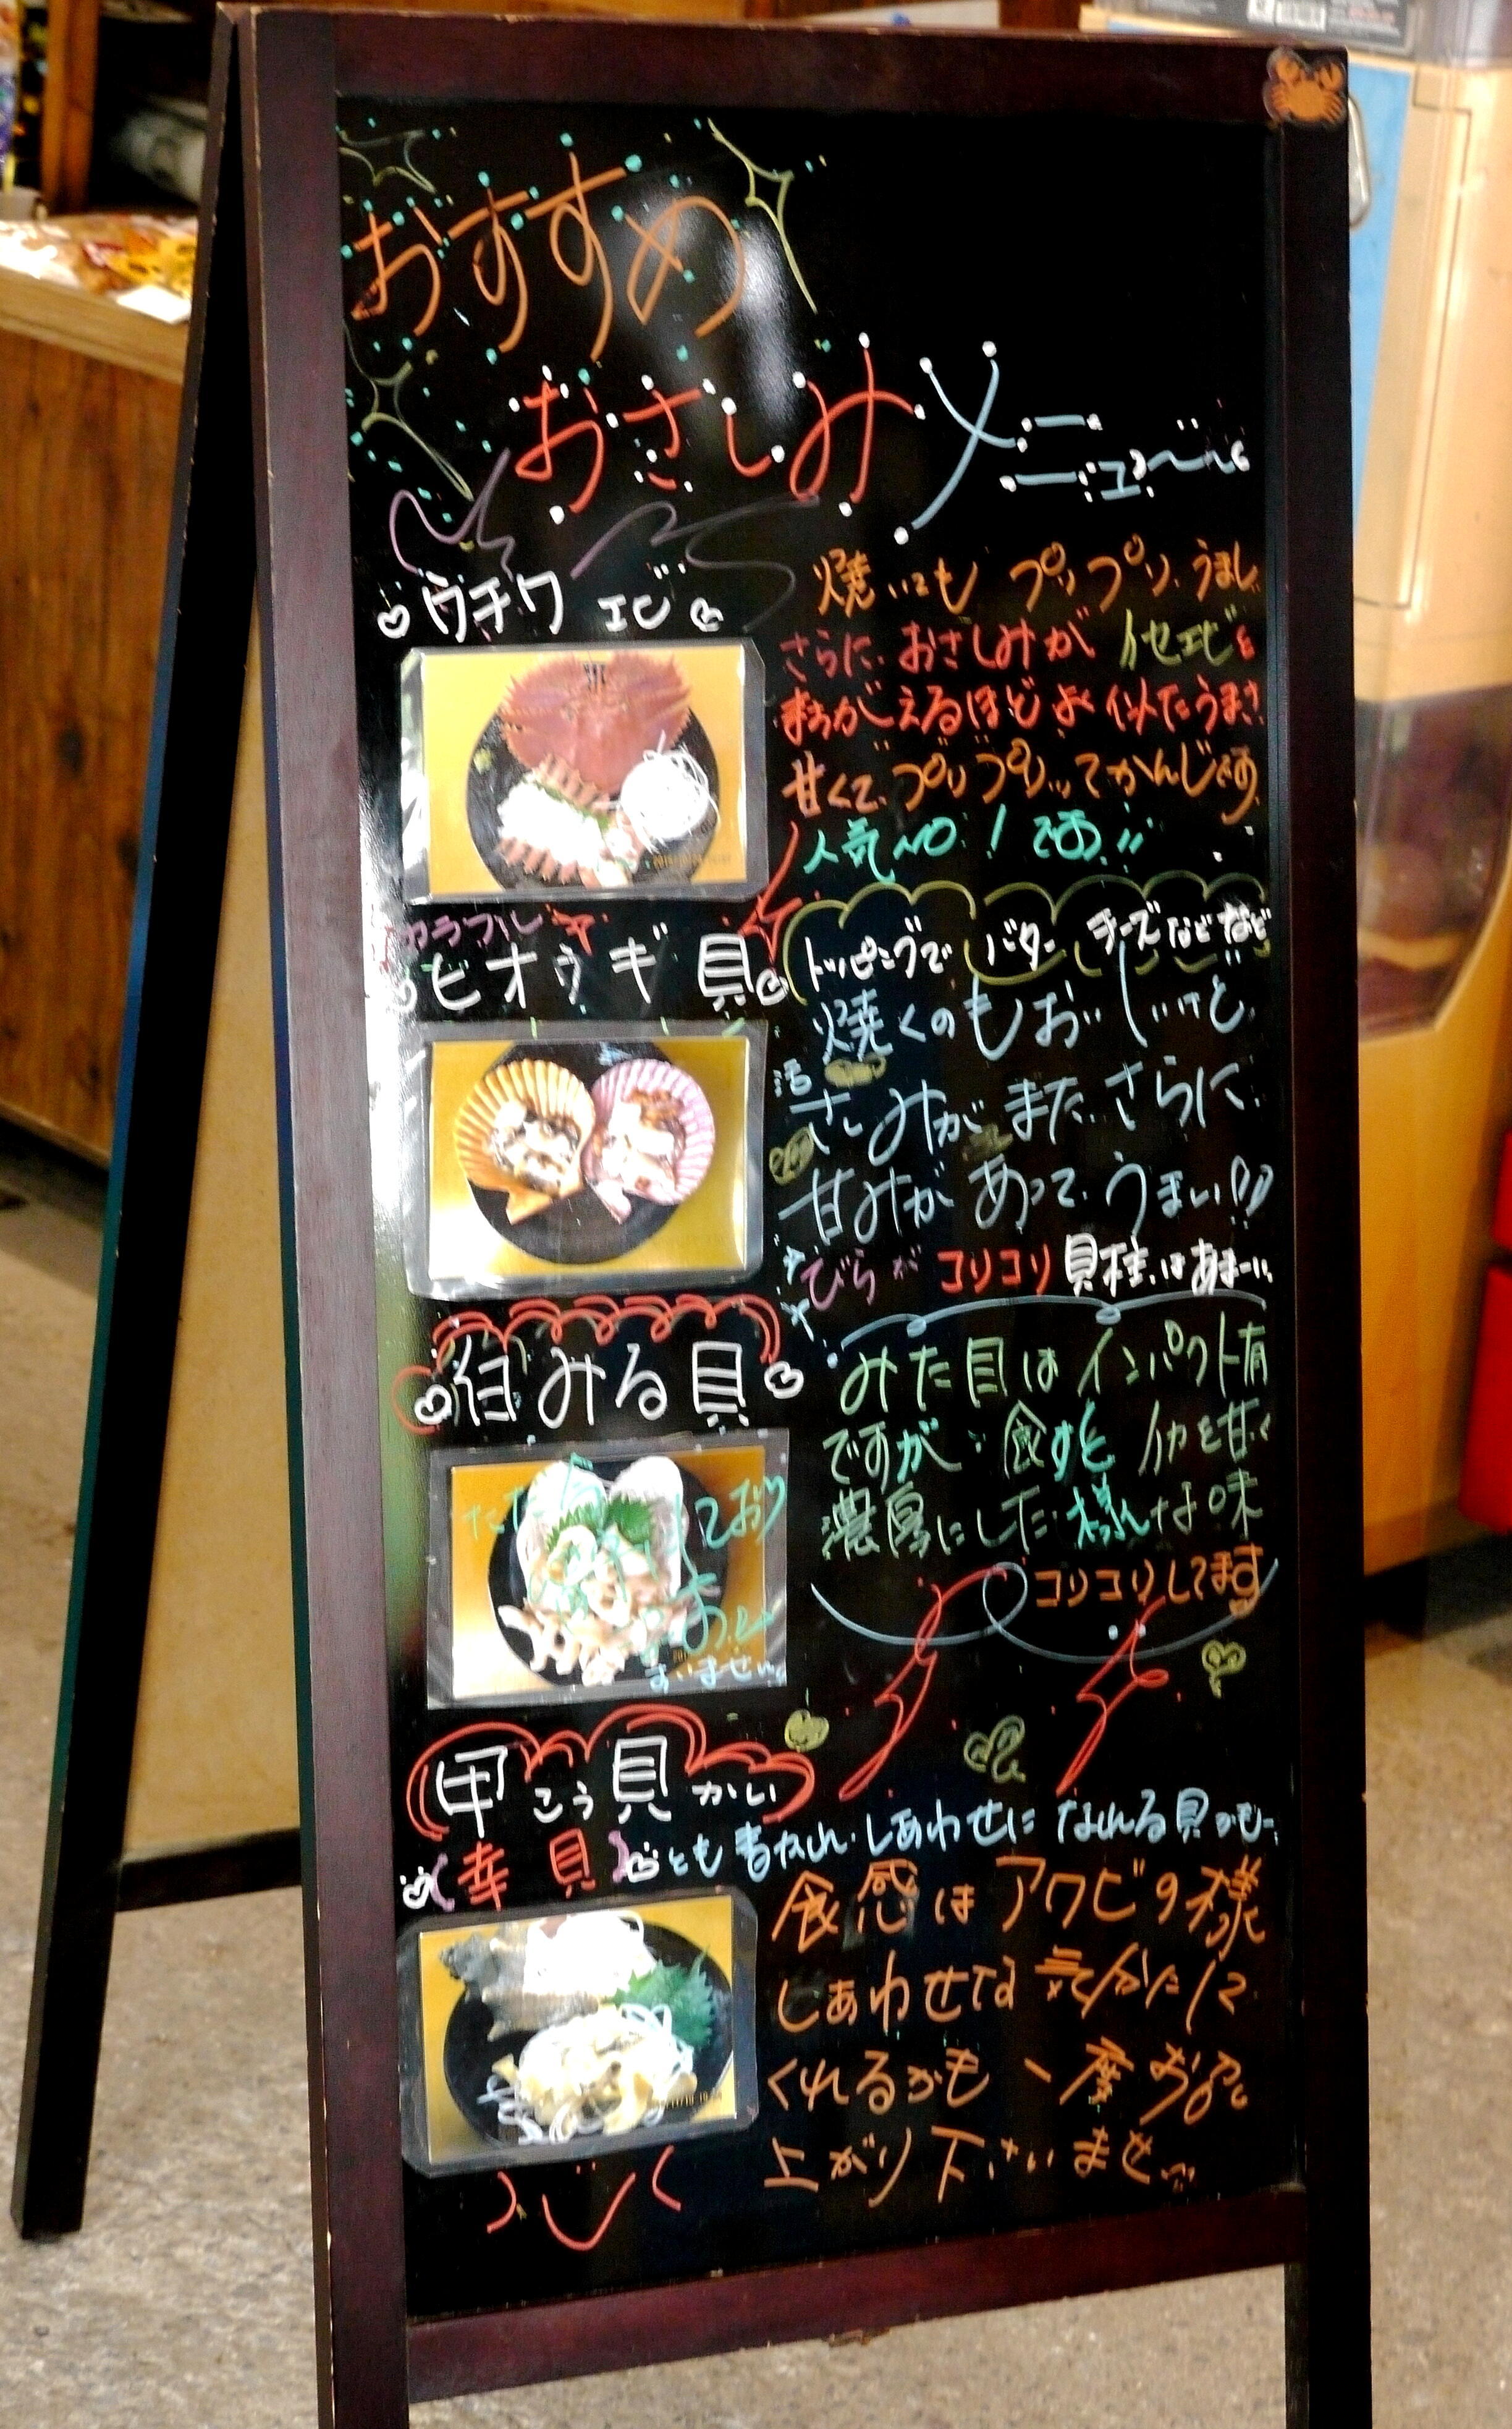 おすすめ
おさしみメニュ〜
ウチワエビ
焼いても プリプリ うまし
さらに おさしみが イセエビと
まちがえるほど よく似たうまさ
甘くて プリプリッってかんじです
人気NO.1です!!
カラフル
ヒオウギ貝
トッピングで バター チーズなどなど
焼くのもおいしいけど
活
さしみが また さらに
甘みが あって うまい!!
びらが コリコリ 貝柱はあまーい
白みる貝
みた目は インパクト有
ですが 食すと イカを甘く
濃厚にした 様な味
コリコリしてます
ただ今
しており
ません
甲こう貝かい
(幸貝)とも書かれ しあわせに なれる貝かも
食感は アワビの様
しあわせな 気分に
くれるかも 一度お召し
上がり下さいませ